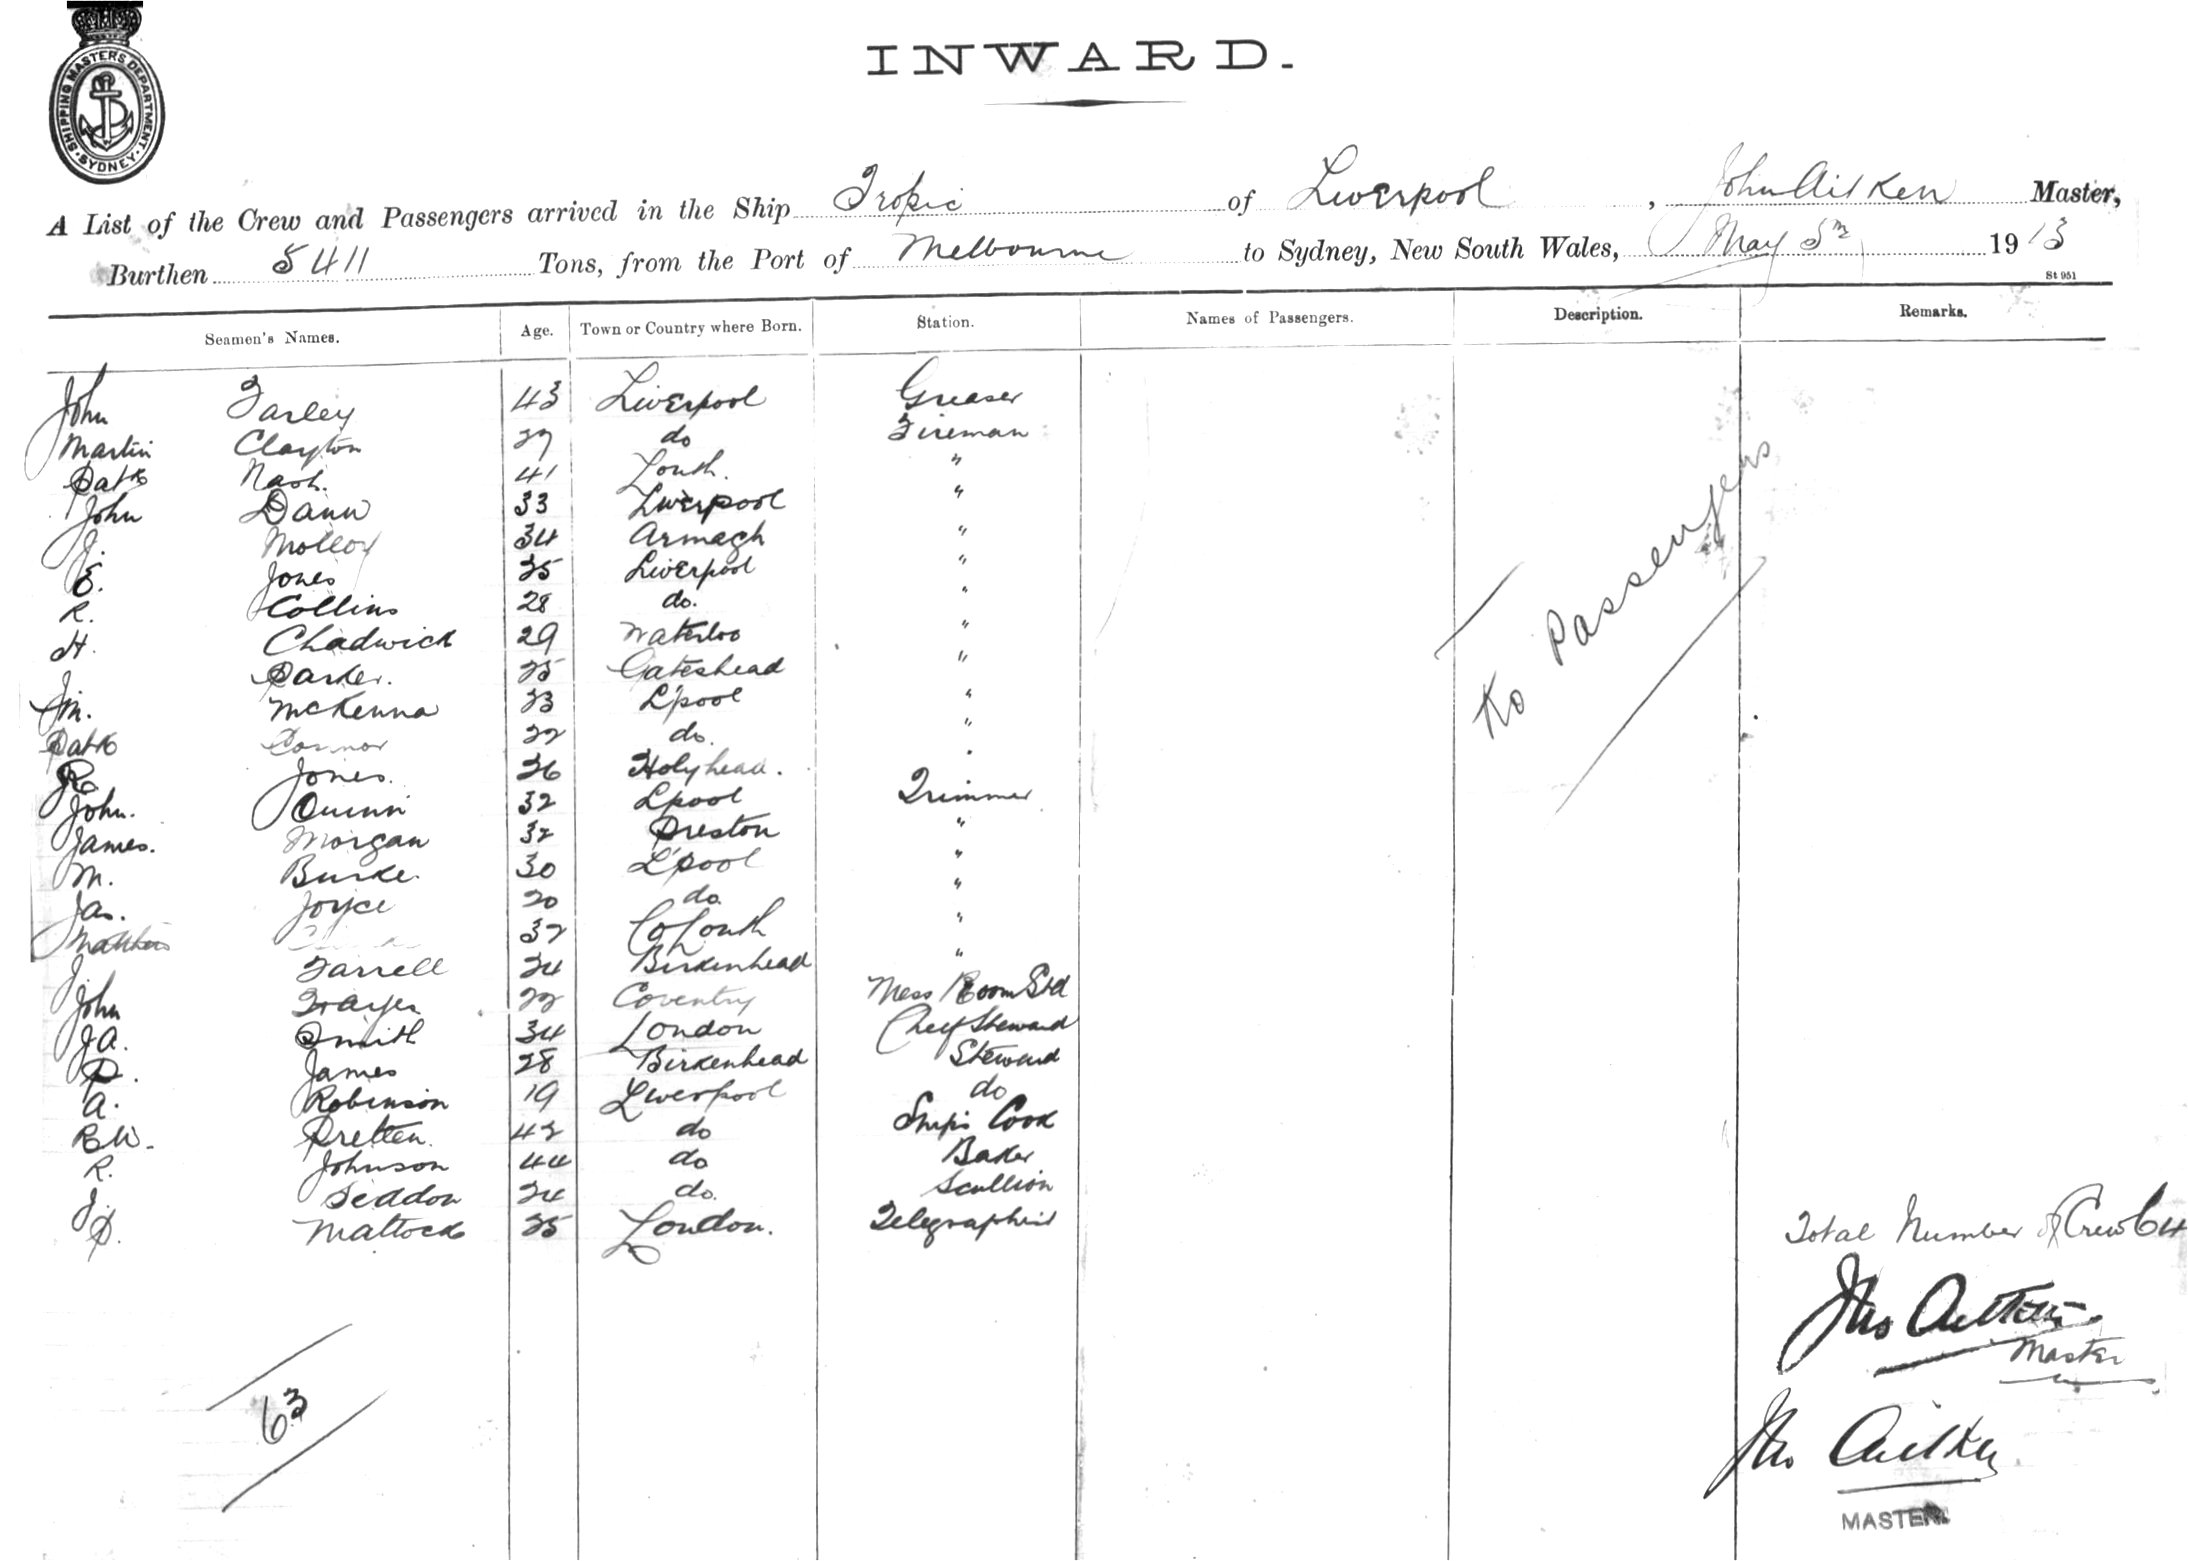 SHIPPING MASTERS DEPARTMENT · SYDNEY ·
INWARD.
A List of the Crew and Passengers arrived in the Ship Tropic of Liverpool, John Aitken Master,
Burthen 5411 Tons, from the Port of Melbourne to Sydney, New South Wales, May 5th 1913
St 951
Seamen's Names. Age. Town or Country where Born. Station. Names of Passengers. Description. Remarks.
John Farley 43 Liverpool Greaser
Martin Clayton 27 do Fireman
Patk Nash. 41 Louth. "
John Dann 33 Liverpool "
J. Molloy 34 Armagh "
E. Jones 35 Liverpool "
R. Collins 28 do. "
H. Chadwick 29 Waterloo "
J. Parker. 25 Gateshead "
M. McKenna 23 L'pool "
Patk Connor 22 do. "
R Jones. 36 Holyhead. "
John. Quinn 32 Lpool Trimmer
James. Morgan 32 Preston "
M. Burke. 30 L'pool "
Jas. Joyce 20 do. "
Matthew 32 Co Louth "
J. Farrell 24 Birkenhead "
John 22 Coventry Mess Room Std
J.A. Smith 34 London Chief Steward
P. James 28 Birkenhead Steward
A. Robinson 19 Liverpool do
R.W. Pretten. 42 do Ships Cook
R. Johnson 44 do Baker
J. Seddon 24 do. Scullion
D. Mattock 25 London. Telegraphist
No Passengers
Total Number of Crew 64
Jno Aitken.
Master
63
Jno Aitken
MASTER.